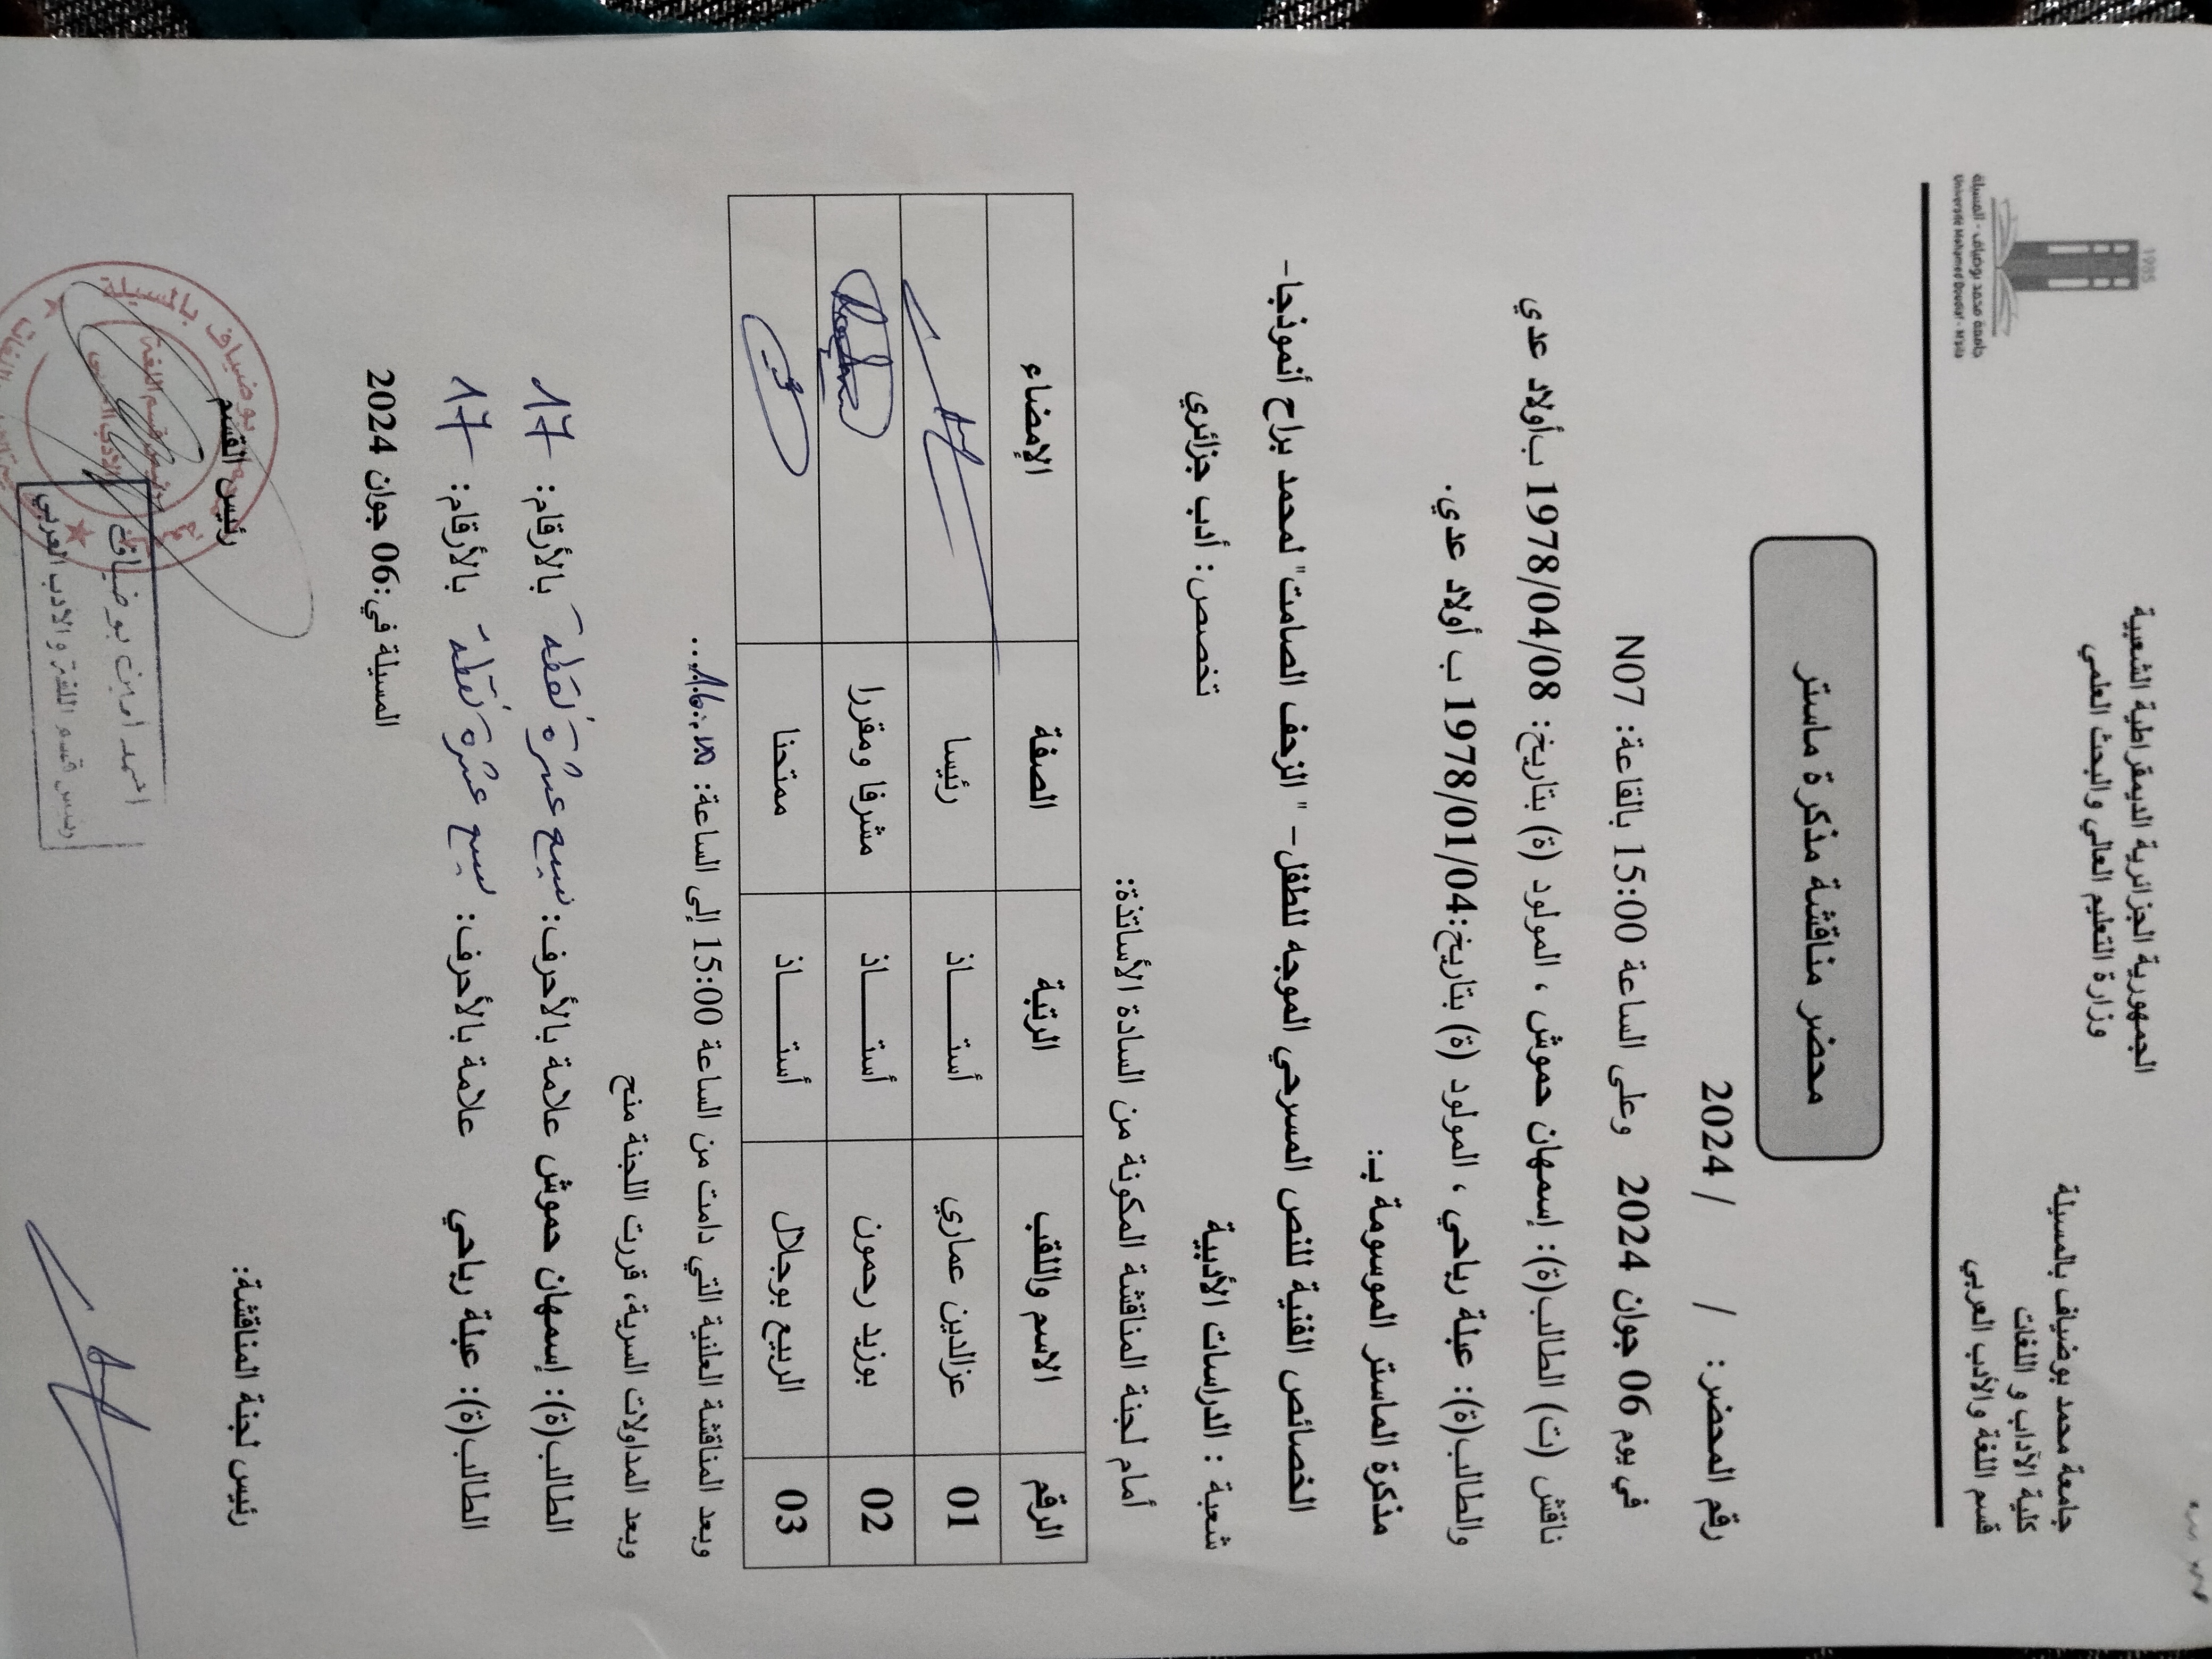 الجمهورية الجزائرية الديمقراطية الشعبية
وزارة التعليم العالي والبحث العلمي
جامعة محمد بوضياف بالمسيلة
كلية الآداب و اللغات
قسم اللغة والأدب العربي
1985
جامعة محمد بوضياف - المسيلة
Université Mohamed Boudiaf - M'sila
محضر مناقشة مذكرة ماستر
رقم المحضر: / / 2024
في يوم 06 جوان 2024 وعلى الساعة 15:00 بالقاعة: N07
ناقش (ت) الطالب(ة): إسمهان حموش ، المولود (ة) بتاريخ: 1978/04/08 بأولاد عدي
والطالب(ة): عبلة رباحي ، المولود (ة) بتاريخ:1978/01/04 ب أولاد عدي.
مذكرة الماستر الموسومة بـ:
الخصائص الفنية للنص المسرحي الموجه للطفل- " الزحف الصامت" لمحمد براح أنموذجا-
شعبة : الدراسات الأدبية تخصص: أدب جزائري
أمام لجنة المناقشة المكونة من السادة الأساتذة:
الرقم الاسم واللقب الرتبة الصفة الإمضاء
01 عزالدين عماري أستــــــاذ رئيسا
02 بوزيد رحمون أستــــــاذ مشرفا ومقررا
03 الربيع بوجلال أستــــــاذ ممتحنا
وبعد المناقشة العلنية التي دامت من الساعة 15:00 إلى الساعة:
وبعد المداولات السرية، قررت اللجنة منح
الطالب(ة): إسمهان حموش علامة بالأحرف: سبع عشرة نقطة بالأرقام: 17
الطالب(ة): عبلة رباحي علامة بالأحرف: سبع عشرة نقطة بالأرقام: 17
المسيلة في:06 جوان 2024
رئيس لجنة المناقشة: رئيس القسم
بوضياف بالمسيلة
رئيس قسم اللغة والادب العربي